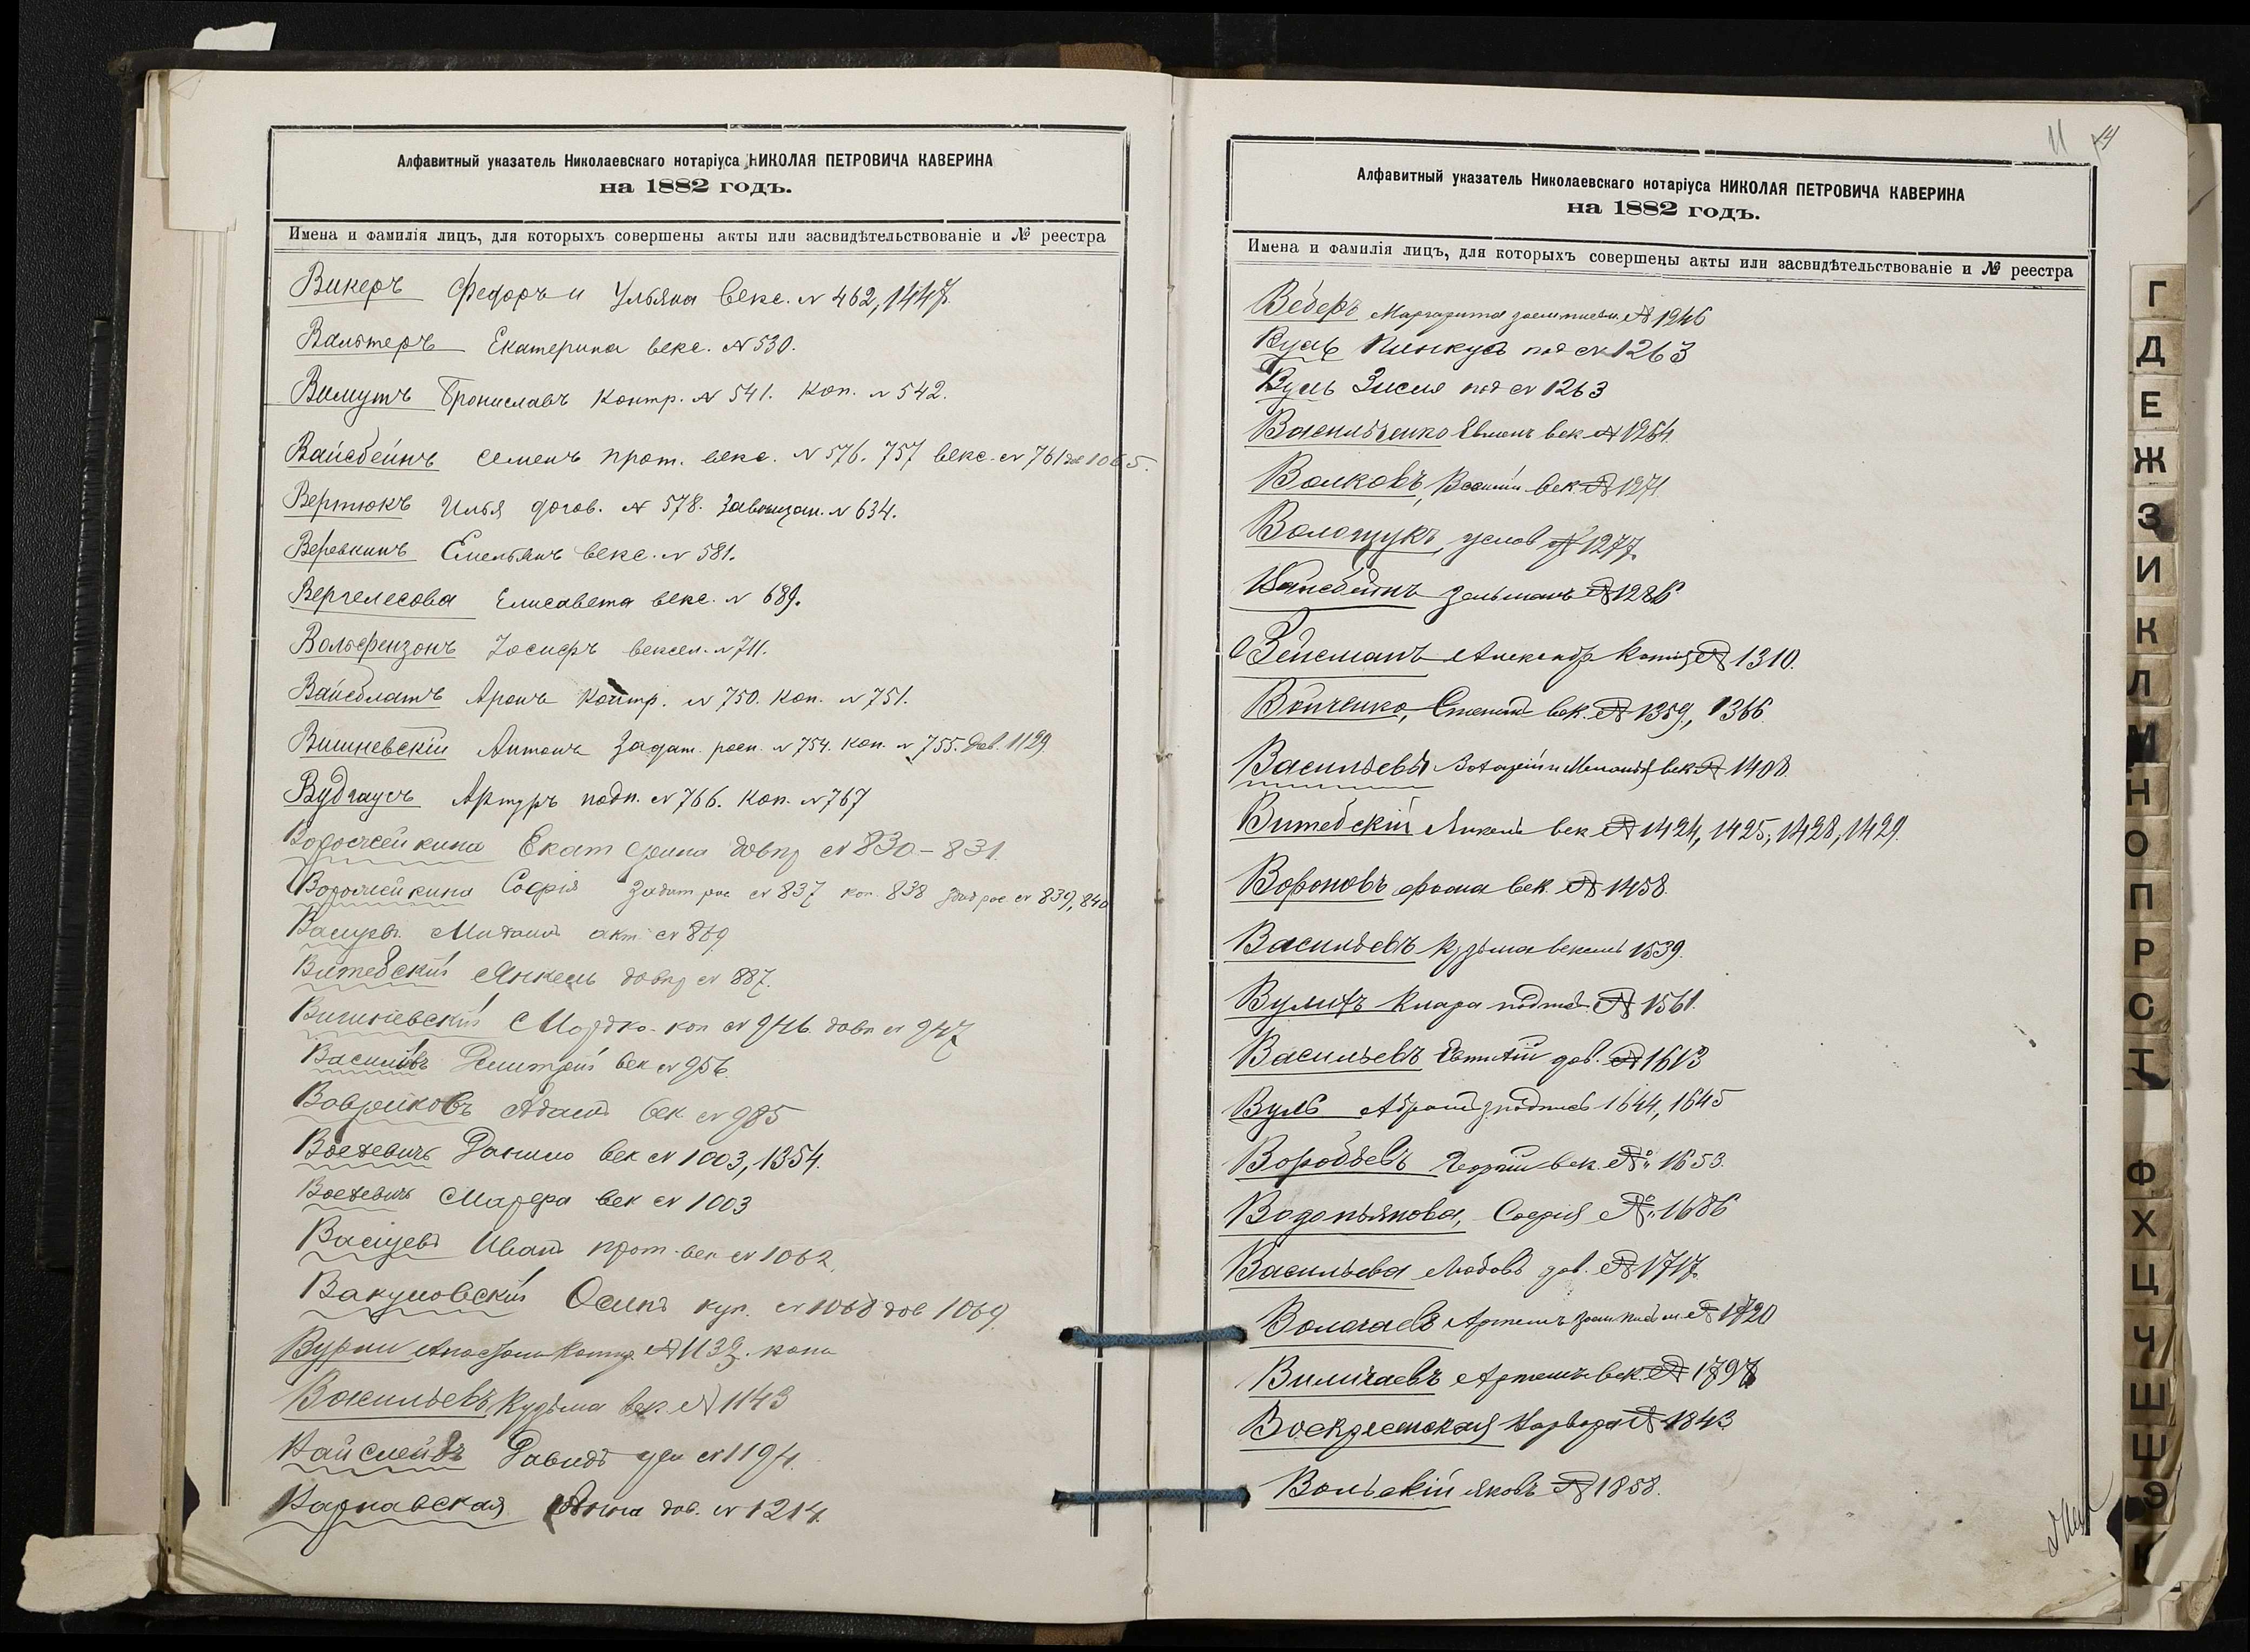 Алфавитный указатель Николаевскаго нотаріуса НИКОЛАЯ ПЕТРОВИЧА КАВЕРИНА
на 1882 годъ.
Имена и фамилія лицъ, для которыхъ совершены акты или засвидѣтельствованіе и № реестра
Викеръ Федоръ и Ульяна векс. № 462, 1447.
Вальтеръ Екатерина векс. № 530.
Вимутъ Брониславъ контр. № 541. коп. № 542.
Вайсбейнъ Семенъ прот. векс. № 576. 757 векс. № 761 дов 1065.
Вертюкъ Илья догов. № 578. Завѣщан. № 634.
Веревкинъ Емельянъ векс. № 581.
Вергелесова Елисавета векс. № 689.
Вольфензонъ Іосифъ вексел. № 711.
Вайсблатъ Аронъ контр. № 750. коп. № 751.
Вишневскій Антонъ Задат. росп. № 754. коп. № 755. Дов. 1129
Вудгаусъ Артуръ подп. № 766. коп. № 767
Екатерина довѣр № 830-831.
Софія Задат рос № 837 коп. 838 рос № 839, 840
акт № 869
Витебскій Янкель довѣр № 887.
Мордко коп № 946 довѣ № 947
Дмитрій век № 956.
Адамъ век № 985
Воевевичъ Данило век № 1003, 1354.
Воевевичъ Марфа век № 1003
Иванъ прот. век № 1062.
Вакуловскій Осипъ куп. № 1068 дов 1069.
Вурли контр № 1132. копи
Васильевъ Кузьма век. № 1143
Давидъ усл № 1194.
Варнавская дов. № 1214.
11
Алфавитный указатель Николаевскаго нотаріуса НИКОЛАЯ ПЕТРОВИЧА КАВЕРИНА
на 1882 годъ.
Имена и фамилія лицъ, для которыхъ совершены акты или засвидѣтельствованіе и № реестра
Веберъ Маргарита заем. письм. № 1246
Вуль Пинкусъ под № 1263
Вуль Зисля под № 1263
Васильченко век № 1264.
Волковъ, Василій век. № 1271
Волощукъ, услов № 1277.
Вайсбейнъ Зельманъ № 1286
Вейсманъ Александр копія № 1310.
Войченко, Степанъ век. № 1359, 1366.
Васильевы и Меланья век № 1408.
Витебскій Янкель век № 1424, 1425, 1428, 1429.
Вороновъ Фома век. № 1458.
Васильевъ Кузьма вексель 1539.
Вулихъ Клара подпись № 1561.
Васильевъ дов. № 1613
Вуль Абрамъ подпись 1644, 1645
Воробьевъ Георгій век. № 1653.
Водопьянова, Софія № 1686
Васильева Любовь дов. № 1717.
Артемъ заем. письм. № 1720
Артемъ век. № 1797
Воскресенская Варвара № 1843
Вольскій Яковъ № 1858.
Г
Д
Е
Ж
З
И
К
Л
М
Н
О
П
Р
С
Т
Ф
Х
Ц
Ч
Ш
Щ
Э